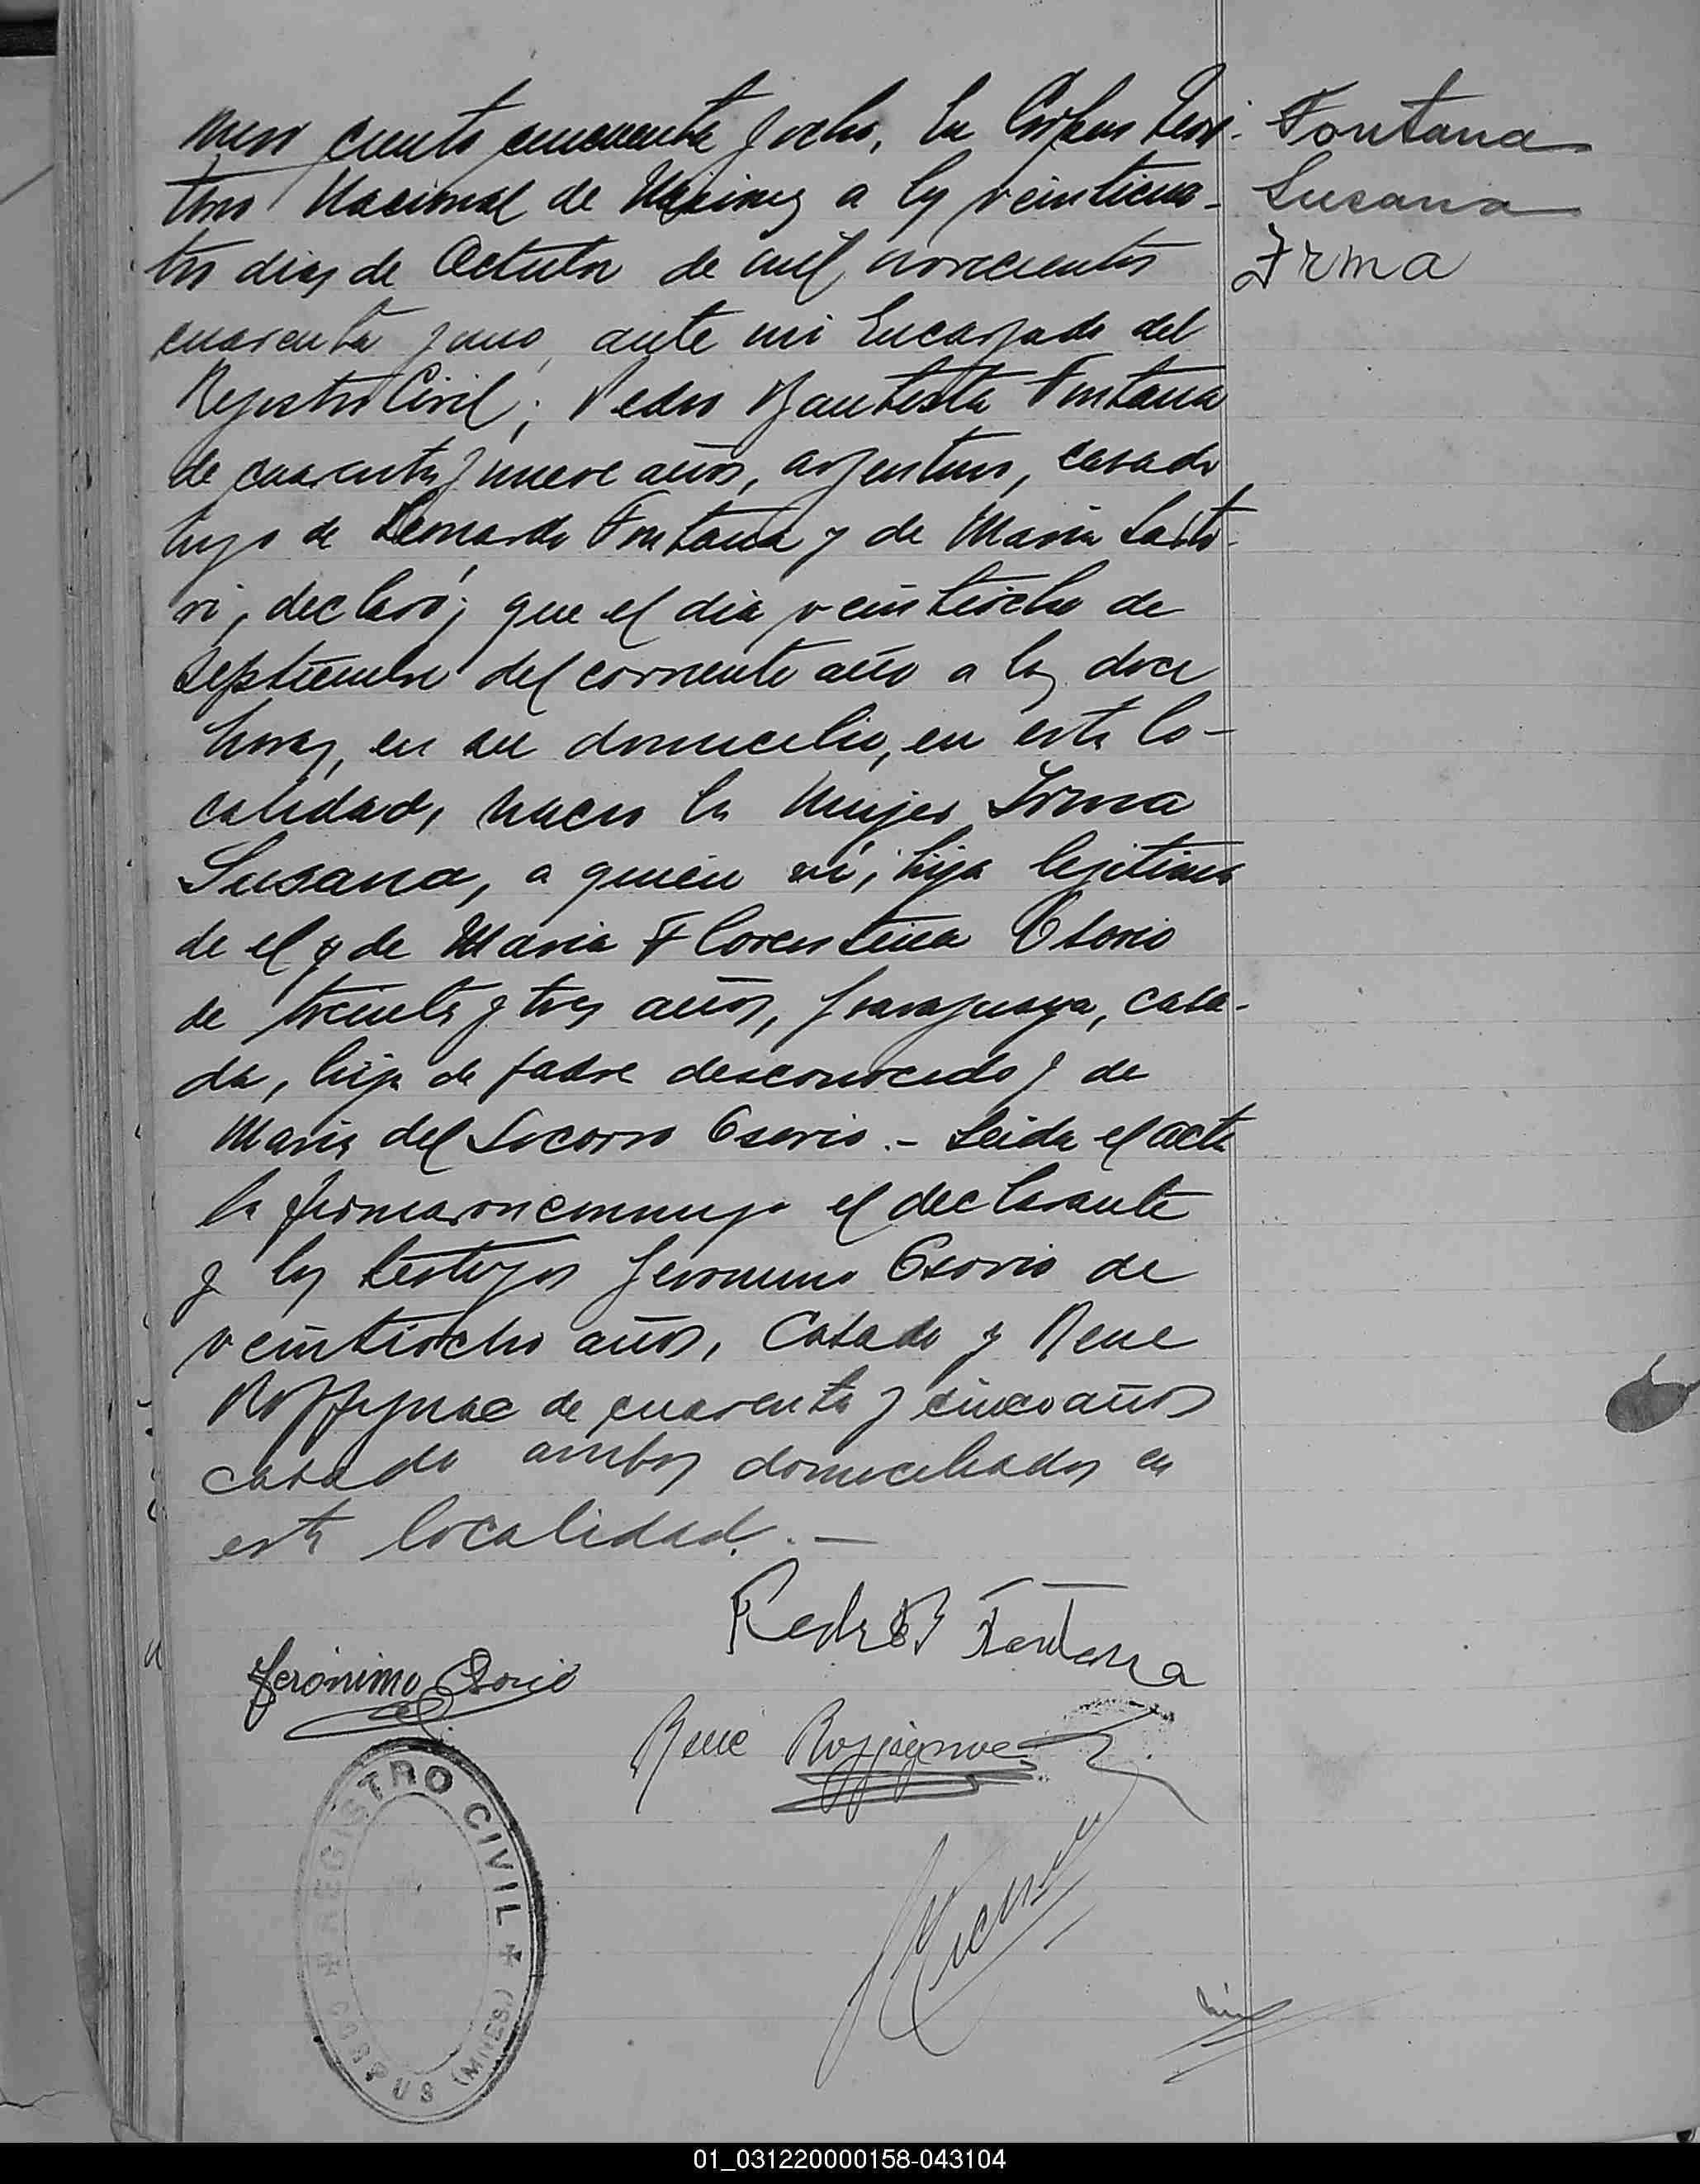 mero ciento cincuenta y ocho, En Corpus Terri-
torio Nacional de Misiones a los veinticua-
tro dias de Octubre de mil novecientos
cuarenta y uno, ante mi Encargado del
Registro Civil; Pedro Bautista Fontana
de cuarenta y nueve años, argentino, casado,
hijo de Leonardo Fontana y de Maria Sarto-
ri, declaró; que el dia veintiocho de
Septiembre del corriente año a las doce
horas, en su domicilio, en esta lo-
calidad, nacio la mujer Irma
Susana, a quien vi, hija legitima
de el y de Maria Florentina Osorio
de treinta y tres años, paraguaya, casa-
da, hija de padre desconocido y de
Maria del Socorro Osorio.- Leida el acta
la firmaron conmigo el declarante
y los testigos Jeronimo Osorio de
veintiocho años, casado y Rene
Roffignac de cuarenta y cinco años
casado ambos domiciliados en
esta localidad.—
Fontana
Susana
Irma
Pedro B Fontana
Jerónimo Osorio
René Roffignac
REGISTRO CIVIL
CORPUS (MNES.)
01_031220000158-043104